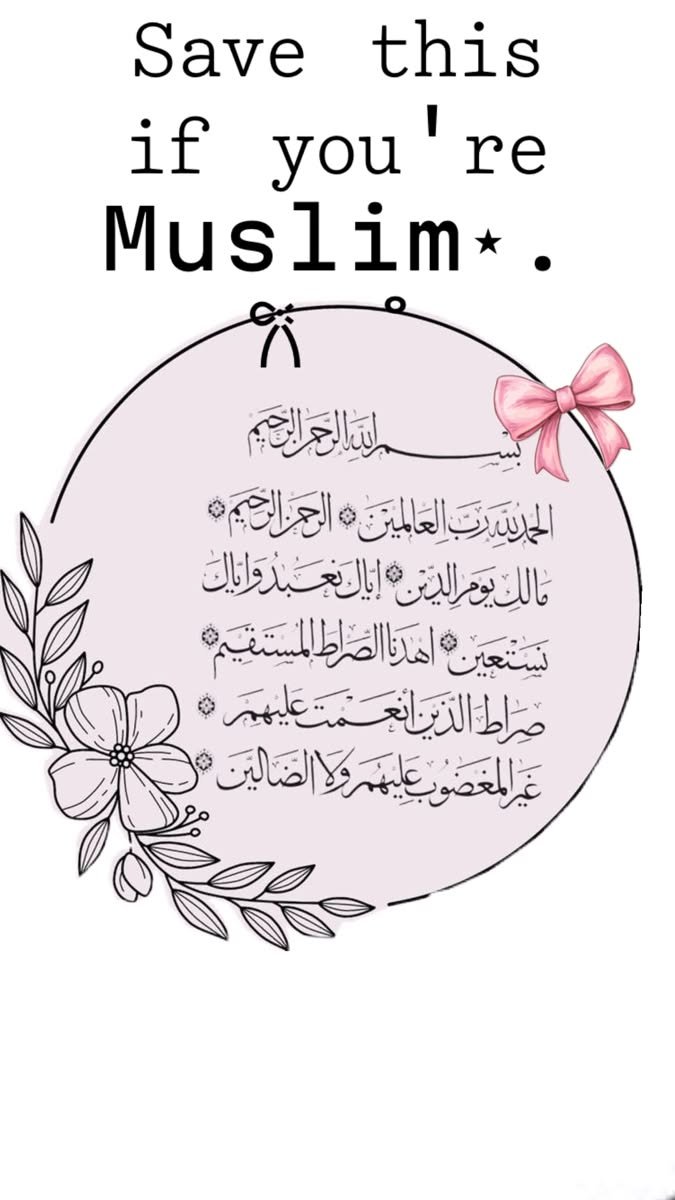 Save this
if you're
Muslim⋆.
بسم الله الرحمن الرحيم
الحمد لله رب العالمين * الرحمن الرحيم *
مالك يوم الدين * إياك نعبد وإياك
نستعين * اهدنا الصراط المستقيم *
صراط الذين أنعمت عليهم *
غير المغضوب عليهم ولا الضالين *